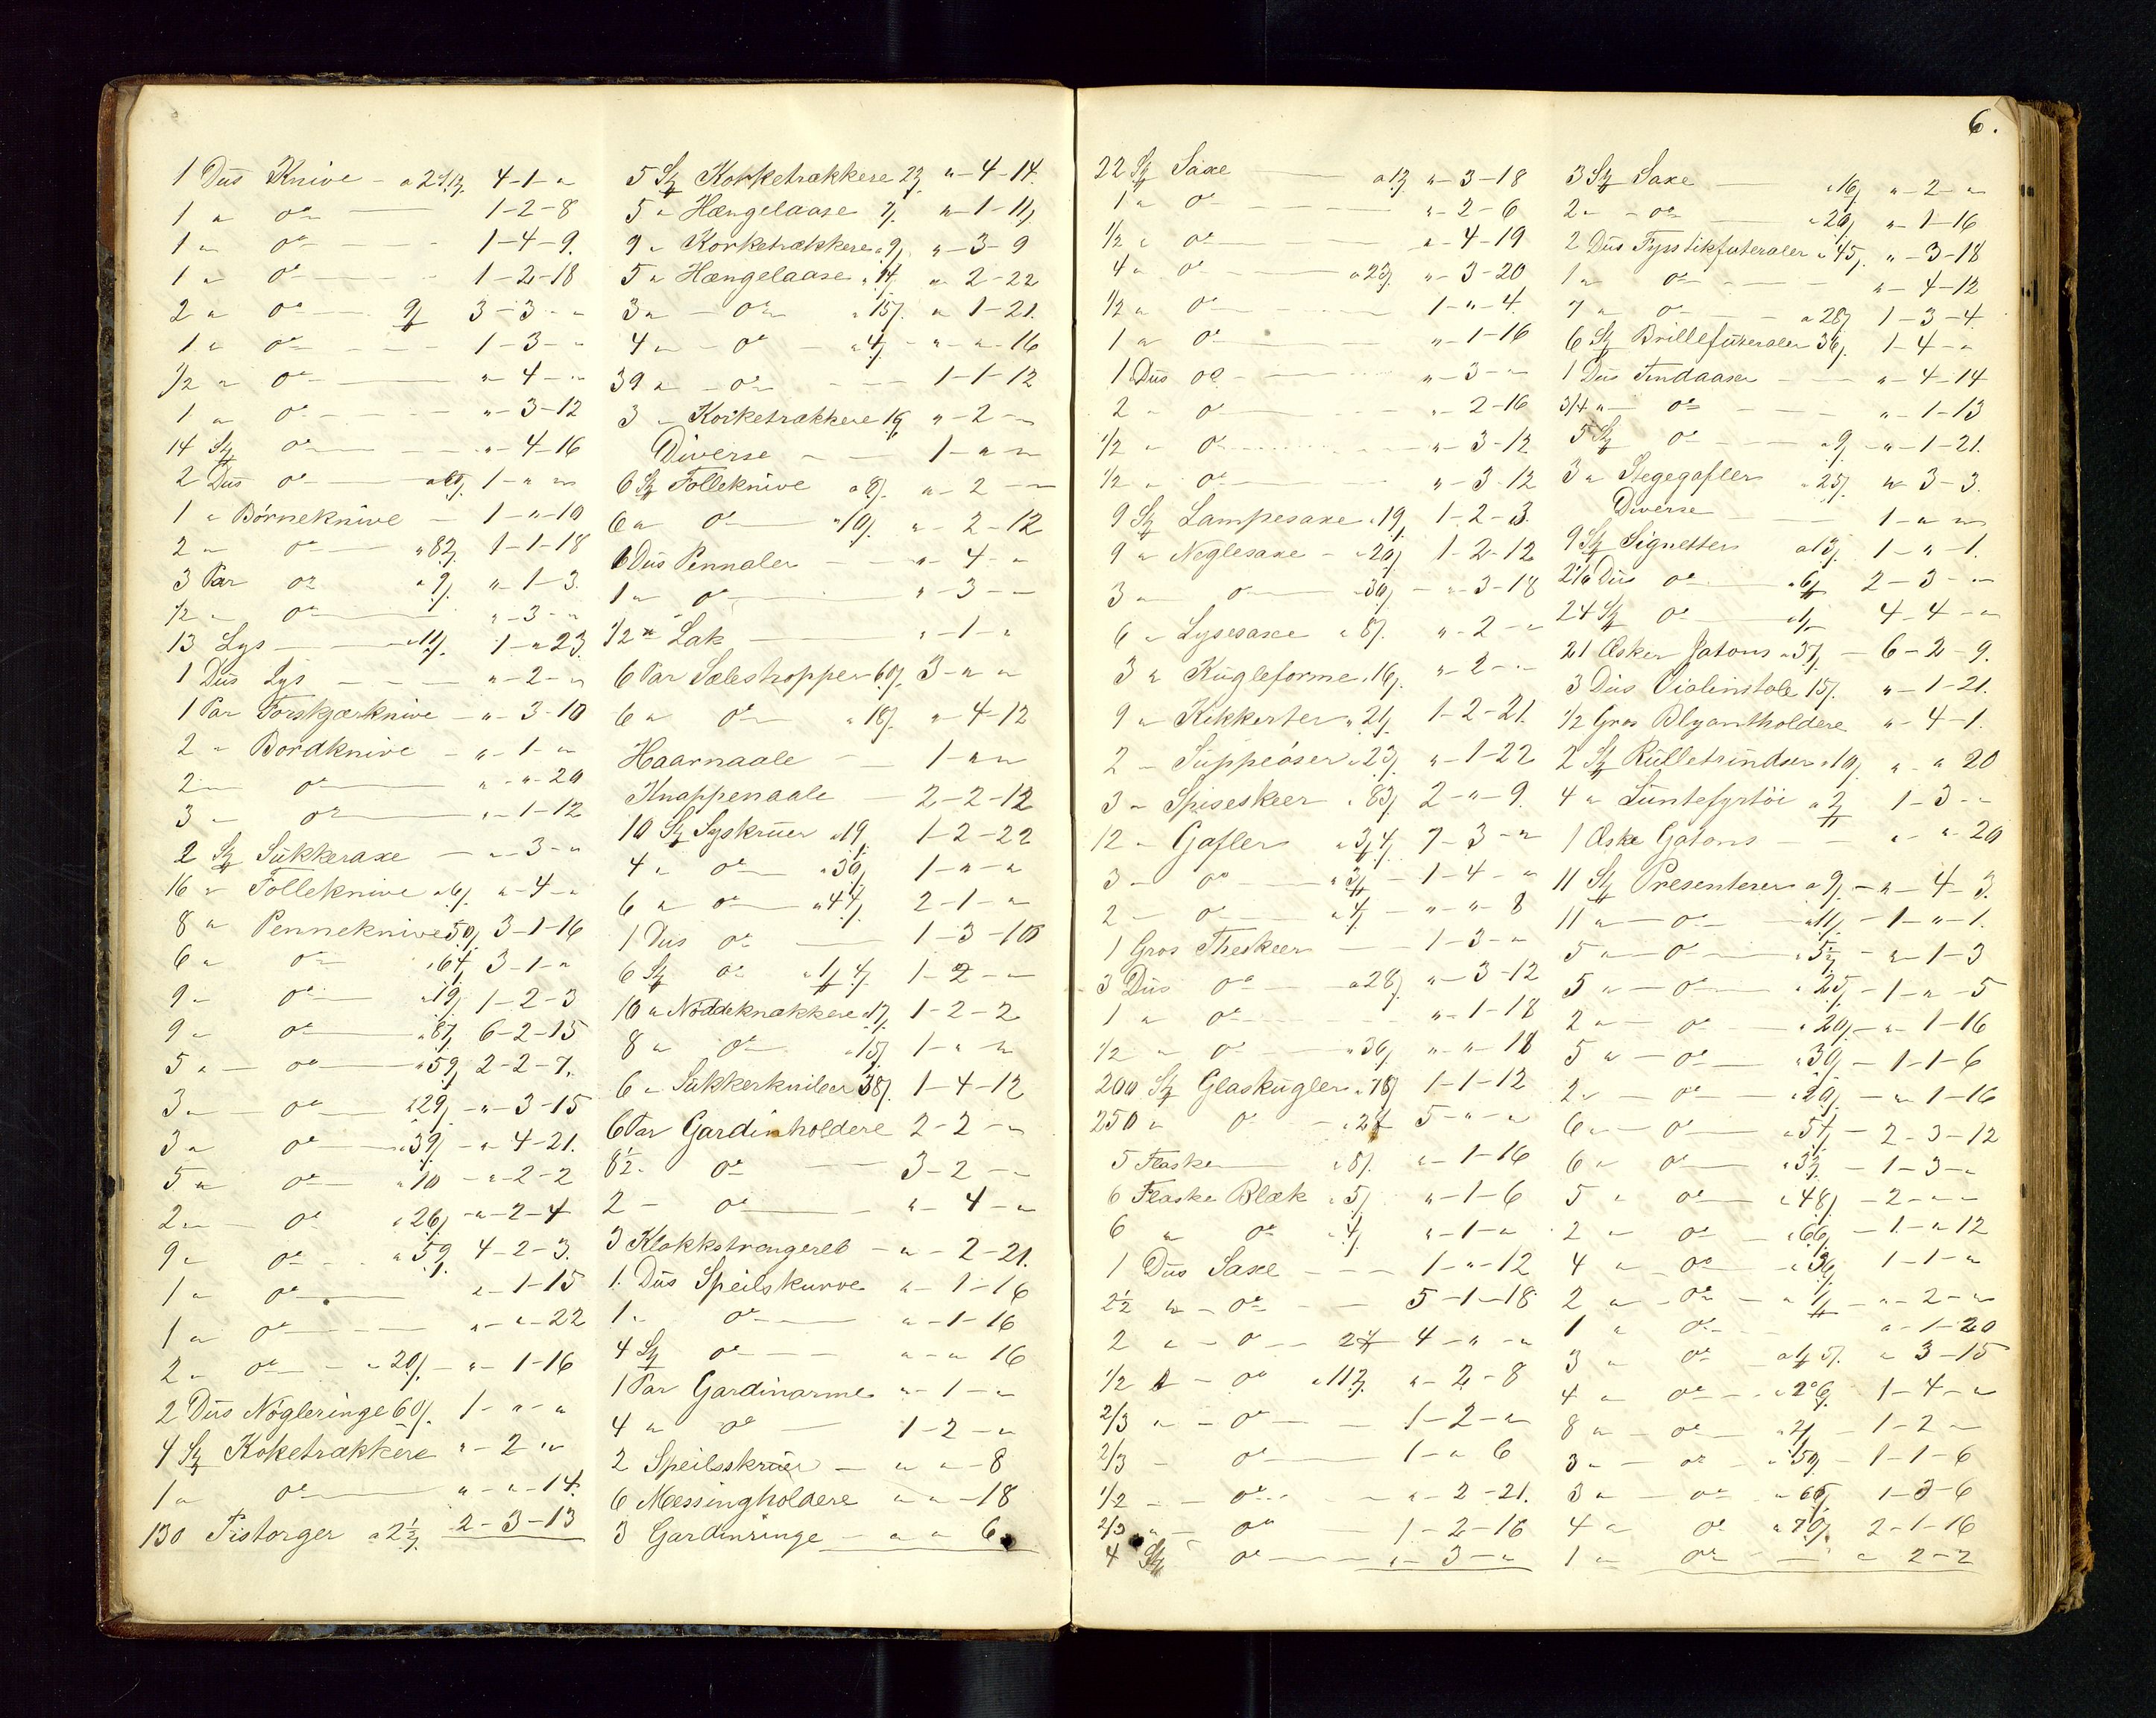 6.
1 Dus Knive - a 2 - 4-1-"
1 " do 1-2-8
1 " do 1-4-9.
1 " do 1-2-18
2 " do 9 3-3-"
1 " do 1-3-"
1/2 " do "-4-"
1 " do "-3-12
14 St do "-4-16
2 Dus do a 60 1-"-"
1 " Börneknive 1-"-10
2 " do " 82 1-1-18
3 Par do " 9 "-1-3
1/2 " do "-3-"
13 Lys 11 1-"-23
1 Dus Lys "-2-"
1 Par Forskjærknive "-3-10
2 " Bordknive "-1-"
2 " do "-"-20
3 " do "-1-12
2 St Sukkeraxe "-3-"
16 " Folleknive a 6 "-4-"
8 " Penneknive 50 3-1-16
6 " do " 64 3-1-"
9 " do " 19 1-2-3
9 " do " 87 6-2-15
5 " do " 59 2-2-7.
3 " do " 29 "-3-15
3 " do " 39 "-4-21.
5 " do " 10 "-2-2
2 " do " 26 "-2-4
9 " do " 59 4-2-3.
1 " do "-1-15
1 " do "-"-22
2 " do " 20 "-1-16
2 Dus Nögleringe 60 1-"-"
4 St Koketrækkere "-2-"
1 " do "-"-14.
130 Fistorger a 2 1/2 2-3-13
5 St Korketrækkere 23 "-4-14.
5 " Hængelaase 7 "-1-11
9 " Korketrækkere a 9 "-3-9
5 " Hængelaase " 14 "-2-22
3 " do " 15 "-1-21.
4 " do " 4 "-"-16
39 " do 1-1-12
3 " Korketrækkere 16 "-2-"
Diverse 1-"-"
6 St Folleknive a 8 "-2-"
6 " do " 10 "-2-12
6 Dus Pennaler "-4-"
1 " do "-3-"
1/2 " Lak "-1-"
6 Par Sælestropper 60 3-"-"
6 " do " 18 "-4-12
Haarnaale 1-"-"
Knappenaale 2-2-12
10 St Syskruer a 19 1-2-22
4 " do " 30 1-"-"
6 " do " 44 2-1-"
1 Dus do 1-3-10
6 St do " 1 4 1-2-"
10 " Nöddeknækkere 17 1-2-2
8 " do " 15 1-"-"
6 " Sukkerkniber 38 1-4-12
6 Par Gardinholdere 2-2-"
8 1/2 " do 3-2-"
2 " do "-4-"
3 Klokkstrengereb "-2-21.
1. Dus Speilskurve "-1-16
1 " do "-1-16
4 St do "-"-16
1 Par Gardinarme "-1-"
4 " do 1-2-"
2 Speilsskruer "-"-8
6 Messingholdere "-"-18
3 Gardinringe "-"-6
22 St Saxe a 13 "-3-18
1 " do "-2-6
1/2 " do "-4-19
4 " do " 23 "-3-20
1/2 " do 1-"-4.
1 " do "-1-16
1 Dus do "-3-"
2 " do "-2-16
1/2 " do "-3-12
1/2 " do "-3-12
9 St Lampesaxe " 19 1-2-3.
9 " Neglesaxe " 20 1-2-12
3 " do 30 "-3-18
6 " Lysesaxe " 8 "-2-"
3 " Kugleforme " 16 "-2-"
9 " Kikkerter " 21 1-2-21.
2 " Suppeöser " 23 "-1-22
3 " Spiseskeer " 83 2-"-9.
12 " Gafler " 3 4 7-3-"
3 " do " 3 1-4-"
2 " do " 4 "-"-8
1 Gros Theskeer 1-3-"
3 Dus do a 28 "-3-12
1 " do "-1-18
1/2 " do " 36 "-"-18
200 St Glaskugler " 78 1-1-12
250 " do " 2 5-"-"
5 Flasker " 8 "-1-16
6 Flaske Blæk " 5 "-1-6
6 " do " 4 "-1-"
1 Dus Saxe 1-"-12
2 1/2 " do 5-1-18
2 " do 2 4-"-"
1/2 " do " 112 "-2-8
2/3 " do 1-2-"
2/3 " do 1-"-6
1/2 " do "-2-21.
2/3 " do 1-2-16
4 St do "-3-"
3 St Saxe " 16 "-2-"
2 " do " 20 "-1-16
2 Dus Fyrstikfuteraler " 45 "-3-18
1 " do "-4-12
7 " do a 28 1-3-4
6 St Brillefuteraler 36 1-4-"
1 Dus Tendaaser "-4-14
3/4 " do "-1-13
5 St do " 9 "-1-21.
3 " Stegegafler " 25 "-3-3.
Diverse 1-"-"
9 St Signetter a 13 1-"-1.
2 1/6 Dus do " 6 2-3-"
24 St do " 1 4-4-"
21 Æsker Jatons " 37 6-2-9.
3 Dus Violinstole 15 "-1-21.
1/2 Gros Blyantholdere "-4-1.
2 St Rulletrindser " 10 "-"-20
4 " Luntefyrtöi a 2 1-3-"
1 Æske Gatons "-"-20
11 St Presenterer a 9 "-4-3.
11 " do " 11 1-"-1.
5 " do " 5 "-1-3
5 " do " 25 1-"-5
2 " do " 20 "-1-16
5 " do " 30 1-1-6
2 " do " 20 "-1-16
6 " do " 54 2-3-12
6 " do " 32 1-3-"
5 " do " 48 2-"-"
2 " do " 66 1-"-12
4 " do " 36 1-1-"
2 " do " 1 "-2-"
1 " do "-1-20
3 " do a 1 5 "-3-15
4 " do " 2 6 1-4-"
8 " do " 21 1-2-"
3 " do " 50 1-1-6
3 " do " 66 1-3-6
4 " do " 70 2-1-16
1 " do "-2-2